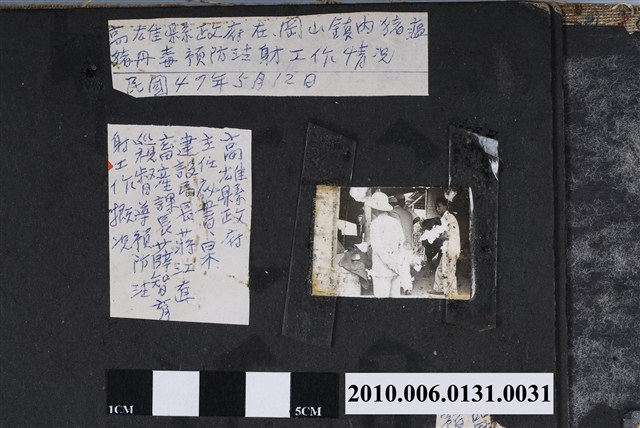 高雄縣政府在、岡山鎮內豬瘟
豬丹毒預防注射工作情況
民國47年5月12日
高雄縣政府
主任秘書、果
建設局長莊江直
畜產課長薛智育
巡視督導預防注
射工作概況
1CM
5CM
2010.006.0131.0031